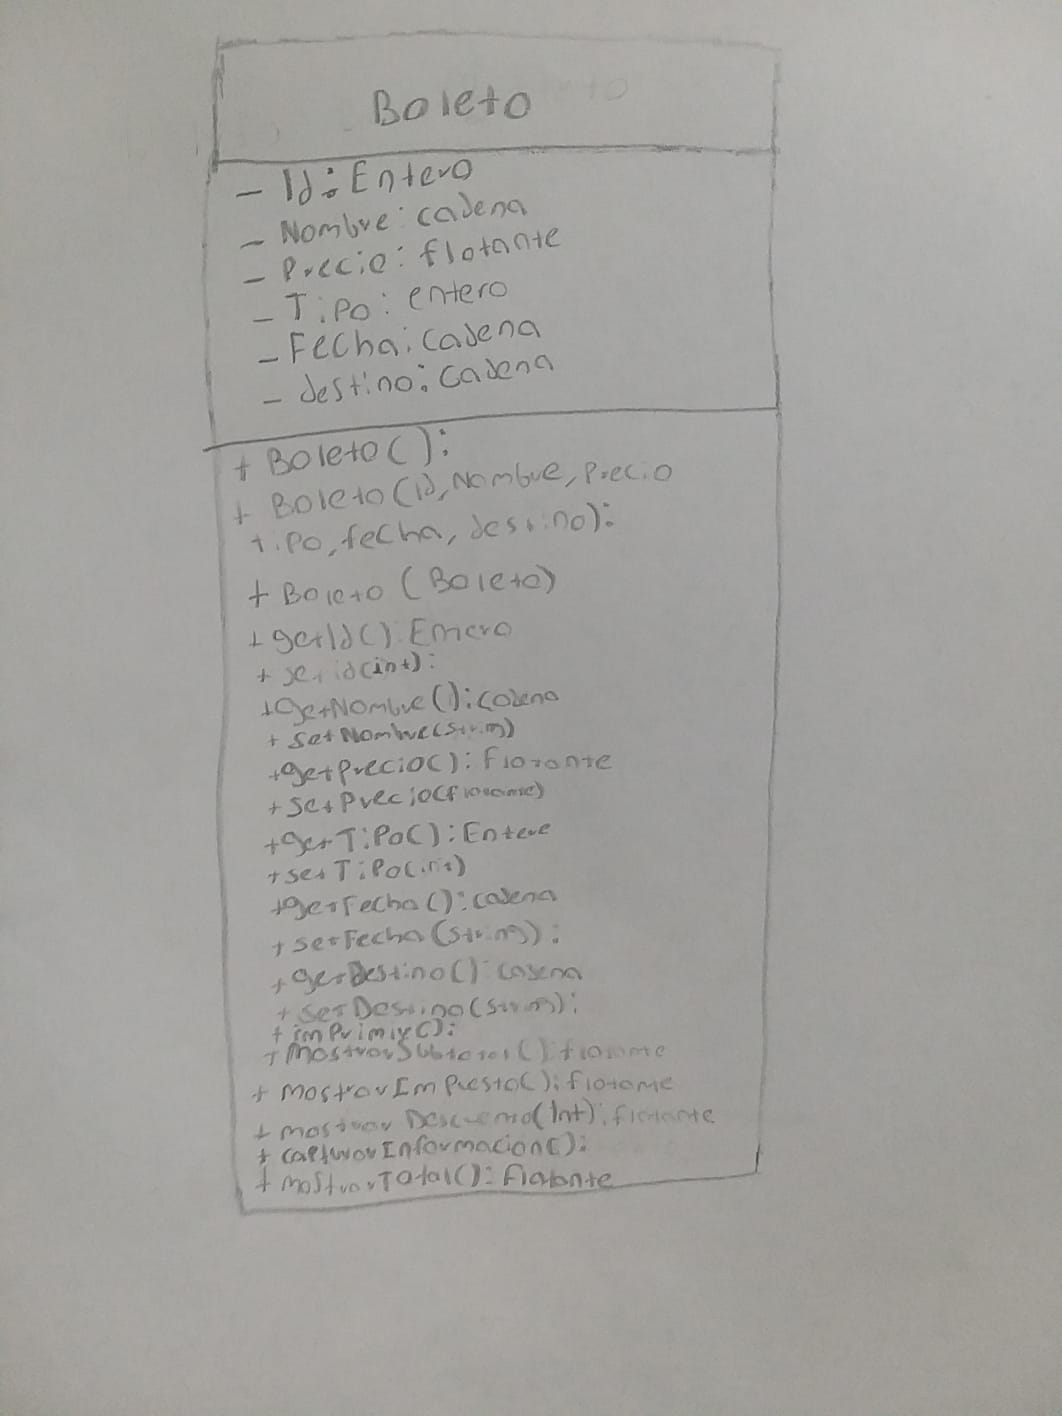 Boleto
- Id: Entero
- Nombre: cadena
- Precio: flotante
- Tipo: entero
- Fecha: cadena
- destino: cadena
+ Boleto():
+ Boleto(id, Nombre, Precio
tipo, fecha, destino):
+ Boleto (Boleto)
+ getId(): Entero
+ setid(int):
+ GetNombre(): cadena
+ SetNombre(String)
+ getPrecio(): flotante
+ SetPrecio(flotante)
+ getTipo(): Entero
+ setTipo(int)
+ getFecha(): cadena
+ setFecha(String):
+ getDestino(): cadena
+ setDestino(String):
+ imPrimir():
+ MostrarSubtotal(): flotante
+ mostrarImpuesto(): flotante
+ mostrar Descuento(Int): flotante
+ capturarInformacion():
+ mostrarTotal(): flotante